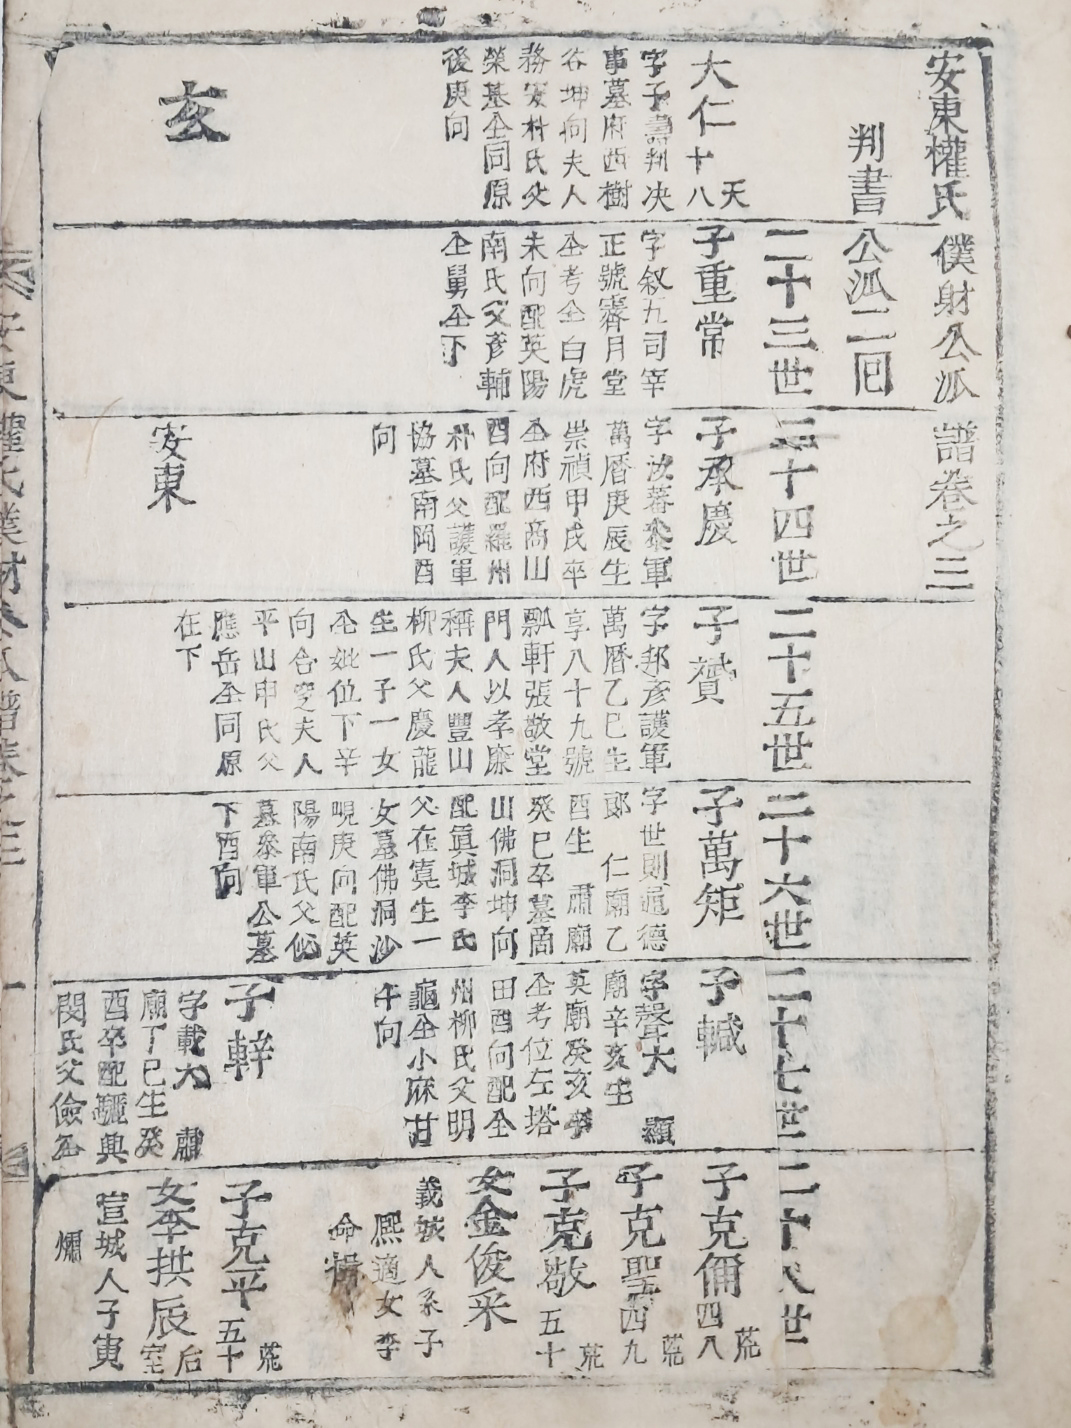 安東權氏僕射公派譜卷之三
判書公派二囘
大仁 天十八
字子壽判决
事墓府西樹
谷坤向夫人
務安朴氏父
榮基仝同原
後庚向
玄
二十三世
子重常
字叙五司宰
正號霽月堂
仝考仝白虎
未向配英陽
南氏父彦輔
仝舅仝下
二十四世
子承慶
字汝蕃叅軍
萬曆庚辰生
崇禎甲戌卒
仝府西高山
酉向配羅州
朴氏父護軍
協墓南岡酉
向
安東
二十五世
子贇
字邦彦護軍
萬曆乙巳生
享八十九號
瓢軒張敬堂
門人以孝廉
稱夫人豐山
柳氏父慶龍
生一子一女
仝妣位下辛
向合窆夫人
平山申氏父
應岳仝同原
在下
二十六世
子萬矩
字世則通德
郎 仁廟乙
酉生 肅廟
癸巳卒墓商
山佛洞坤向
配眞城李氏
父在寬生一
女墓佛洞沙
峴庚向配英
陽南氏父佖
墓叅軍公墓
下酉向
二十七世
子轞
字聲大 顯
廟辛亥生
英廟癸亥卒
仝考位左塔
田酉向配全
州柳氏父明
龜仝小麻甘
午向
子䡅
字載大 肅
廟丁巳生癸
酉卒配驪興
閔氏父儉仝
二十八世
子克俌 荒四八
子克聖 荒四九
子克敬 荒五十
女金俊采
義城人系子
熙適女李
命楫
子克平 荒五十
女李拱辰 后室
宣城人子寅
爀